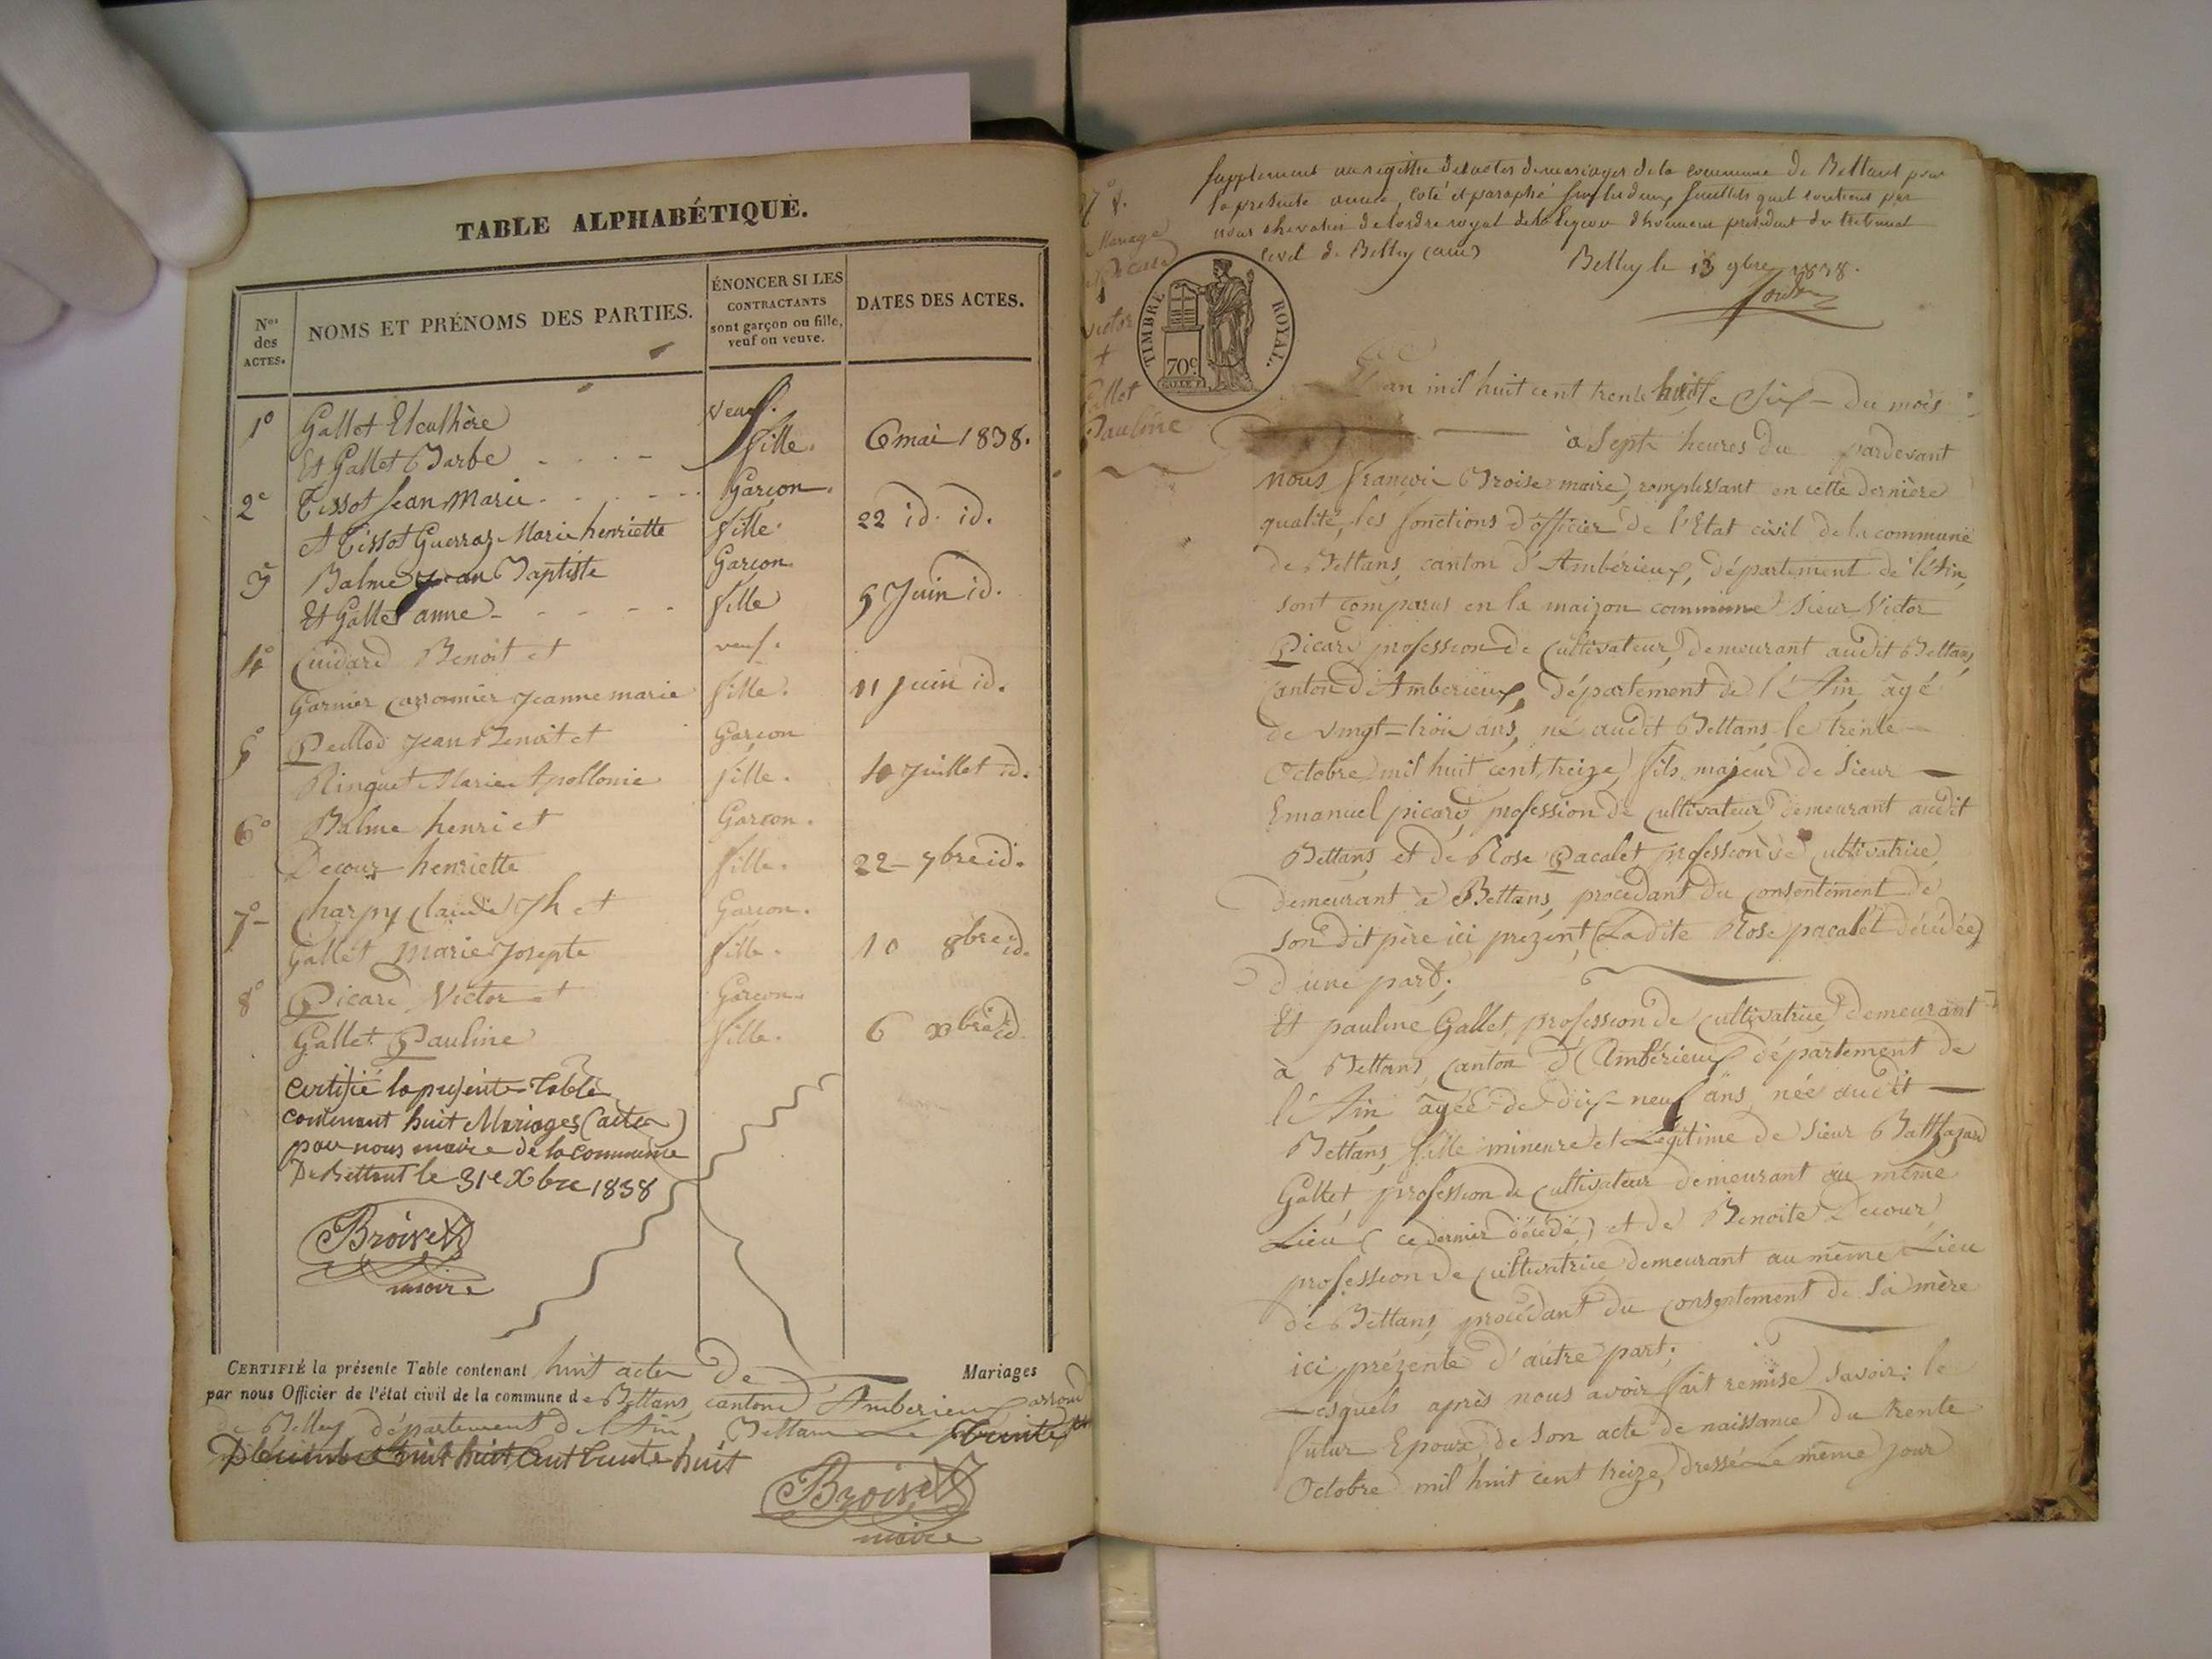 TABLE ALPHABÉTIQUE.
Nos des ACTES.
NOMS ET PRÉNOMS DES PARTIES.
ÉNONCER SI LES CONTRACTANTS sont garçon ou fille, veuf ou veuve.
DATES DES ACTES.
1o Gallet Eleuthère veuf.
Et Gallet Barbe fille. 6 mai 1838.
2e Tissot Jean Marie Garçon.
et Tissot Guerraz Marie henriette fille. 22 id. id.
3e Balme Jean Baptiste Garçon.
Et Gallet anne fille 5 Juin id.
4o Cuidard Benoit et veuf.
Garnier Jeanne marie fille. 11 juin id.
5o Peillod Jean Benoit et Garçon
Ringuet Marie Apollonie fille. 10 Juillet id.
6o Balme henri et Garçon.
Decour henriette fille. 22 7bre id.
7o Charpy Claude Jh et Garçon.
Gallet Marie Josepte fille. 10 8bre id.
8o Picard Victor et Garçon.
Gallet Pauline fille. 6 xbre id.
Certifié la présente Table
contenant huit Mariages (actes)
par nous maire de la commune
De Bettant le 31e Xbre 1838
Broiset
maire
CERTIFIÉ la présente Table contenant huit actes de Mariages
par nous Officier de l'état civil de la commune de Bettans, canton d'Amberieux, arrond
de Belley département de l'Ain Bettans Le trente
Décembre mil huit Cent trente huit
Broiset
maire
8.
Mariage
Picard
Victor
+
Gallet
Pauline
Supplement au registre des actes de mariages de la commune de Bettant pour
la presente année, coté et paraphé sur les deux feuillets quil contient par
nous chevalier de l'ordre royal de la legion d'honneur president du tribunal
civil de Belley (ain) Belley le 13 9bre 1838.
TIMBRE ROYAL.
70c.
L'an mil huit cent trente huit le Six du mois
à Sept heures du pardevant
nous François Broiset maire, remplissant en cette dernière
qualité, les fonctions d'officier de l'Etat civil de la commune
de Bettans, canton d'Ambérieux, département de l'Ain,
sont comparus en la maizon commune Sieur Victor
Picard profession de Cultivateur, demeurant audit Bettans,
Canton d'Amberieux, département de l'Ain, âgé
de vingt-trois ans, né audit Bettans le trente
Octobre mil huit cent treize, fils majeur de Sieur
Emanuel picard, profession de Cultivateur demeurant audit
Bettans, et de Rose Pacalet profession de Cultivatrice,
demeurant à Bettans, procédant du Consentement de
son dit père ici prezent (Ladite Rose pacalet décédée)
D'une part;
Et pauline Gallet, profession de Cultivatrice, demeurant
à Bettans, Canton d'Ambérieux département de
l'Ain âgée de dix-neuf ans née audit
Bettans, fille mineure et Légitime de Sieur Balthazard
Gallet, profession de Cultivateur demeurant au même
Lieu (ce dernier décédé) et de Benoite Decour,
profession de Cultivatrice demeurant au même Lieu
de Bettans, procédant du Consentement de Sa mère
ici prézente d'autre part;
Lesquels après nous avoir fait remise Savoir: le
futur Epoux, de Son acte de naissance du trente
Octobre mil huit cent treize, dressé Le même jour